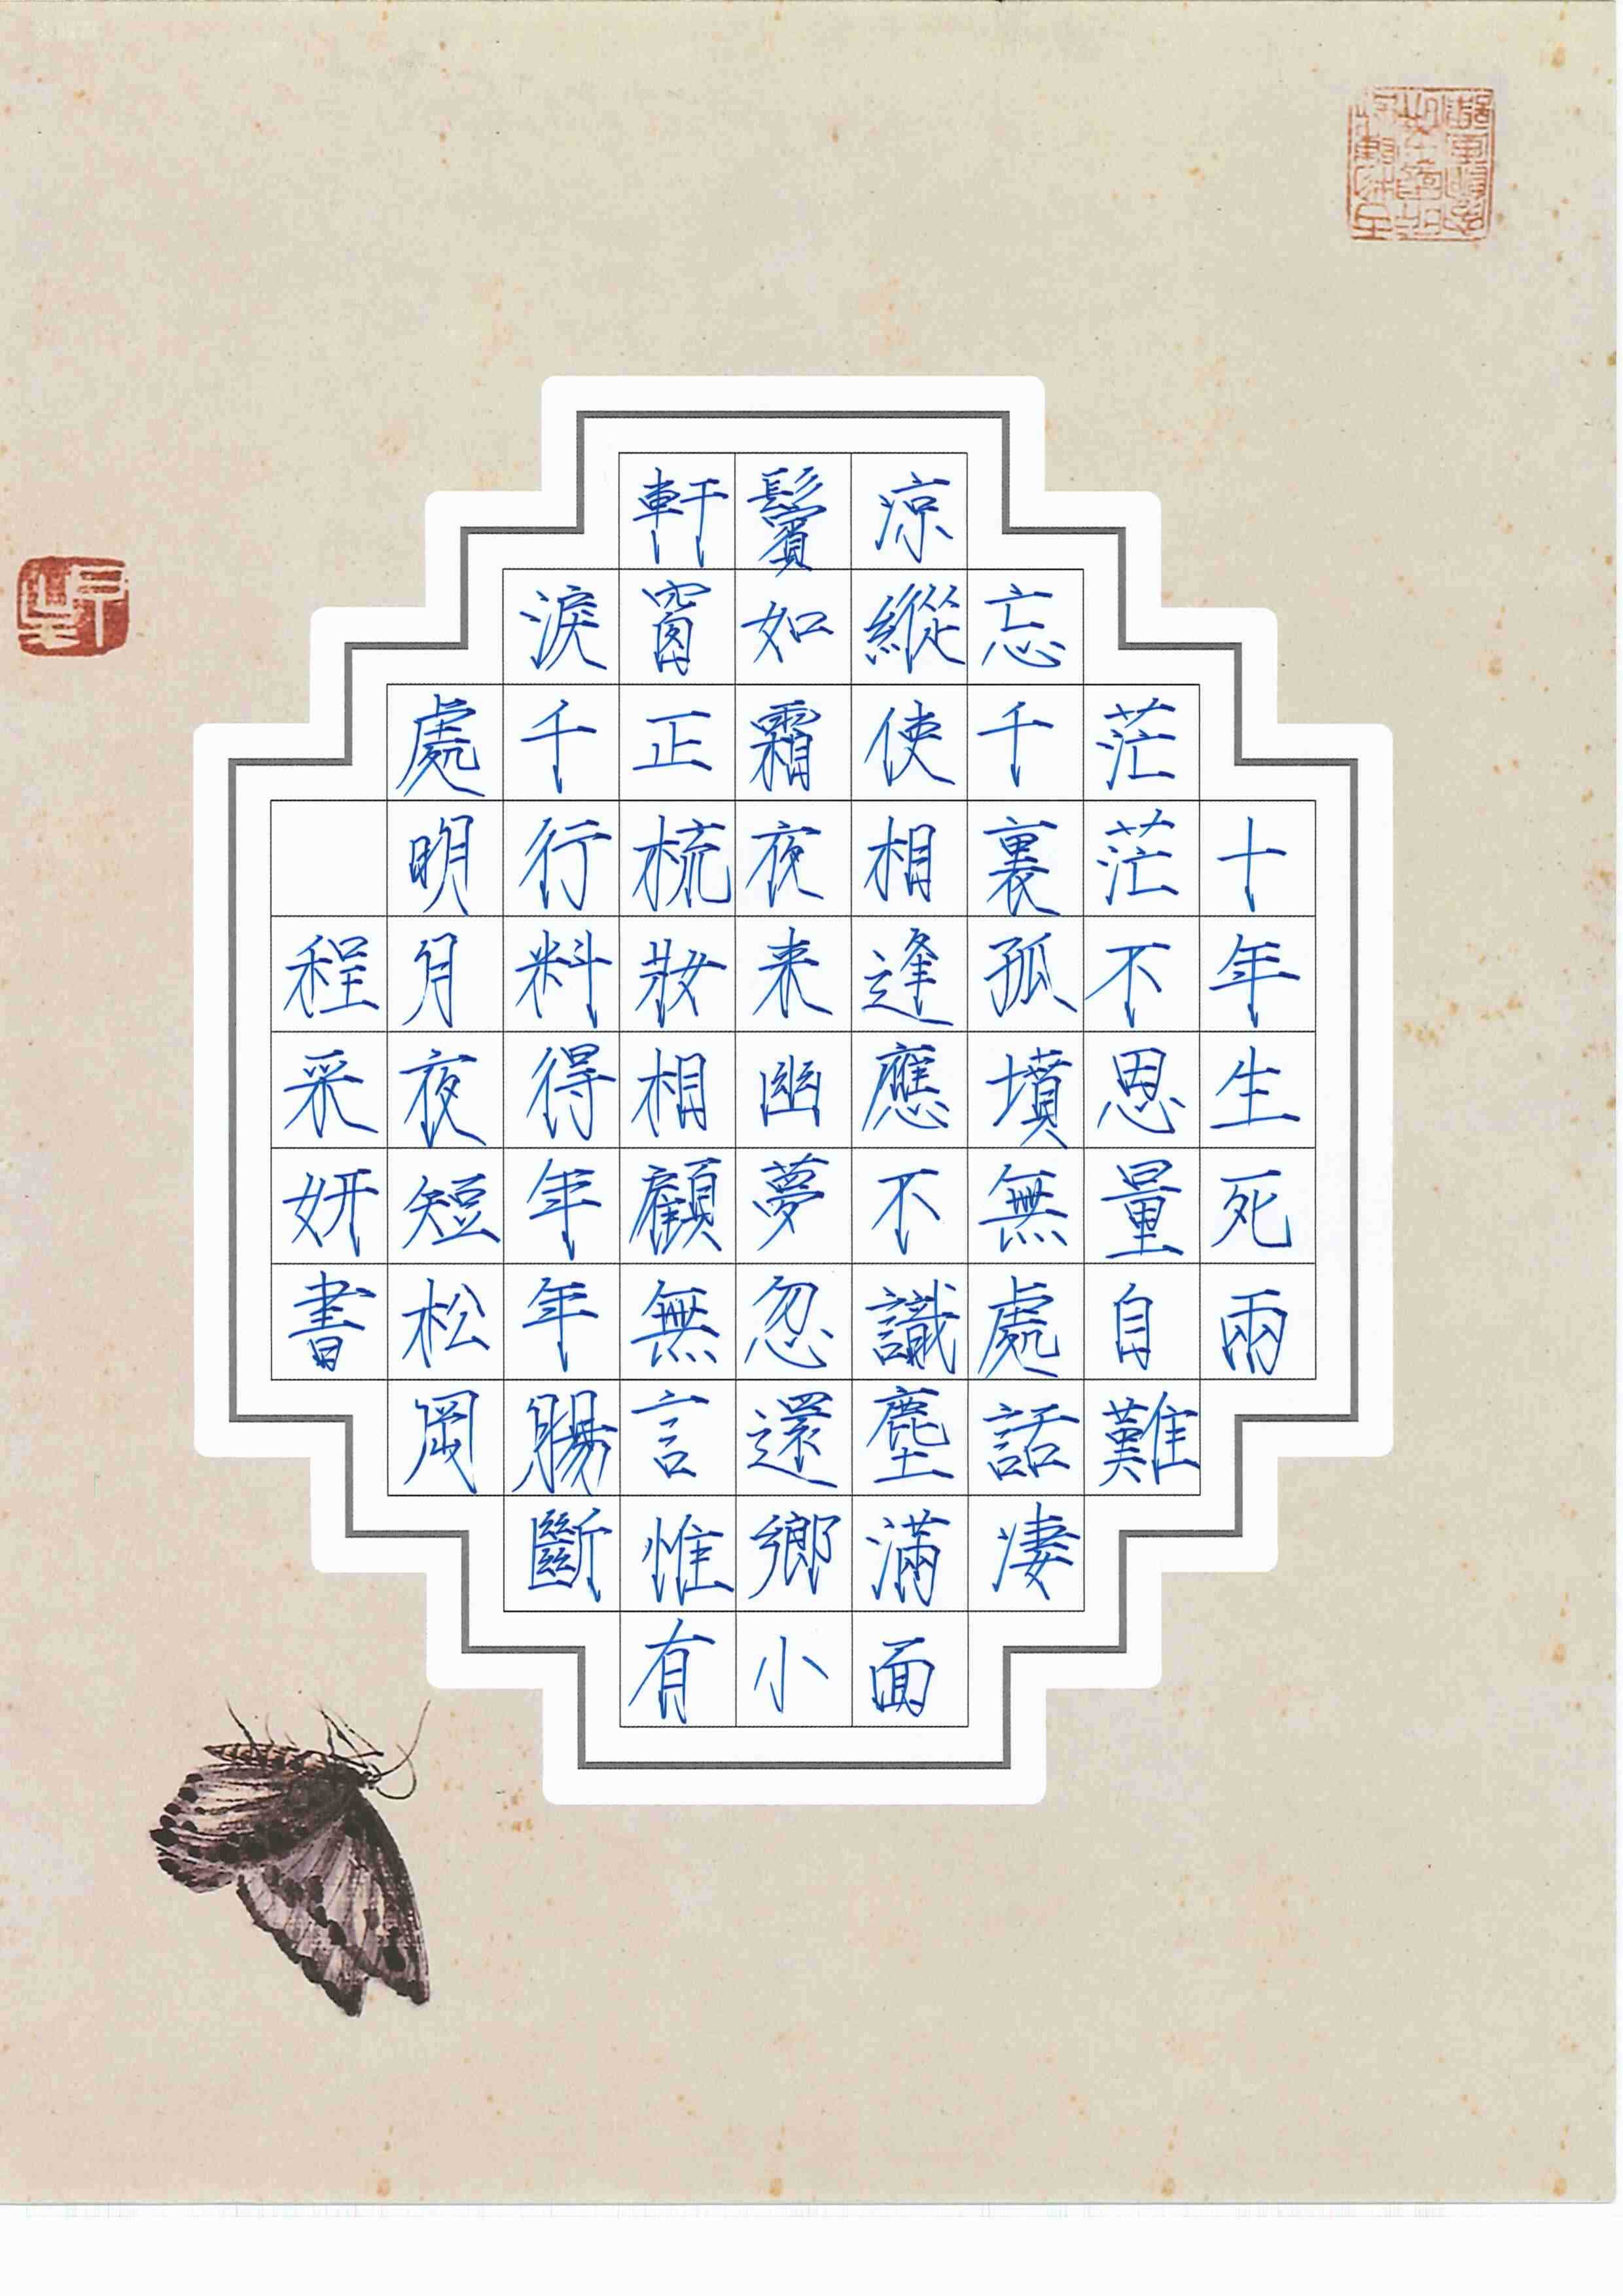 十年生死兩
茫茫不恩量自難
忘千裏孤墳無處話凄
涼縱使相逢應不識塵滿面
鬢如霜夜来幽夢忽還鄉小
軒窗正梳妝相顧無言惟有
淚千行料得年年腸斷
處明月夜短松岡
程采妍書